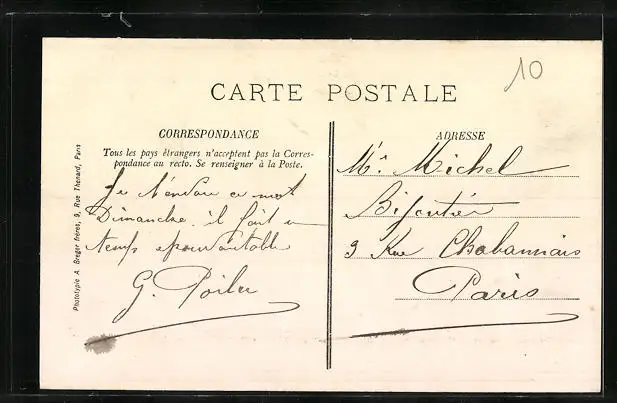 10
CARTE POSTALE
CORRESPONDANCE
Tous les pays étrangers n'acceptent pas la Corres-
pondance au recto. Se renseigner à la Poste.
Je t'envoie ce mot
Dimanche il fait un
temps épouvantable
G. Poilu
ADRESSE
Mr Michel
Bijoutier
9 Rue Chabannais
Paris
Phototypie A. Breger frères, 9, Rue Thénard, Paris